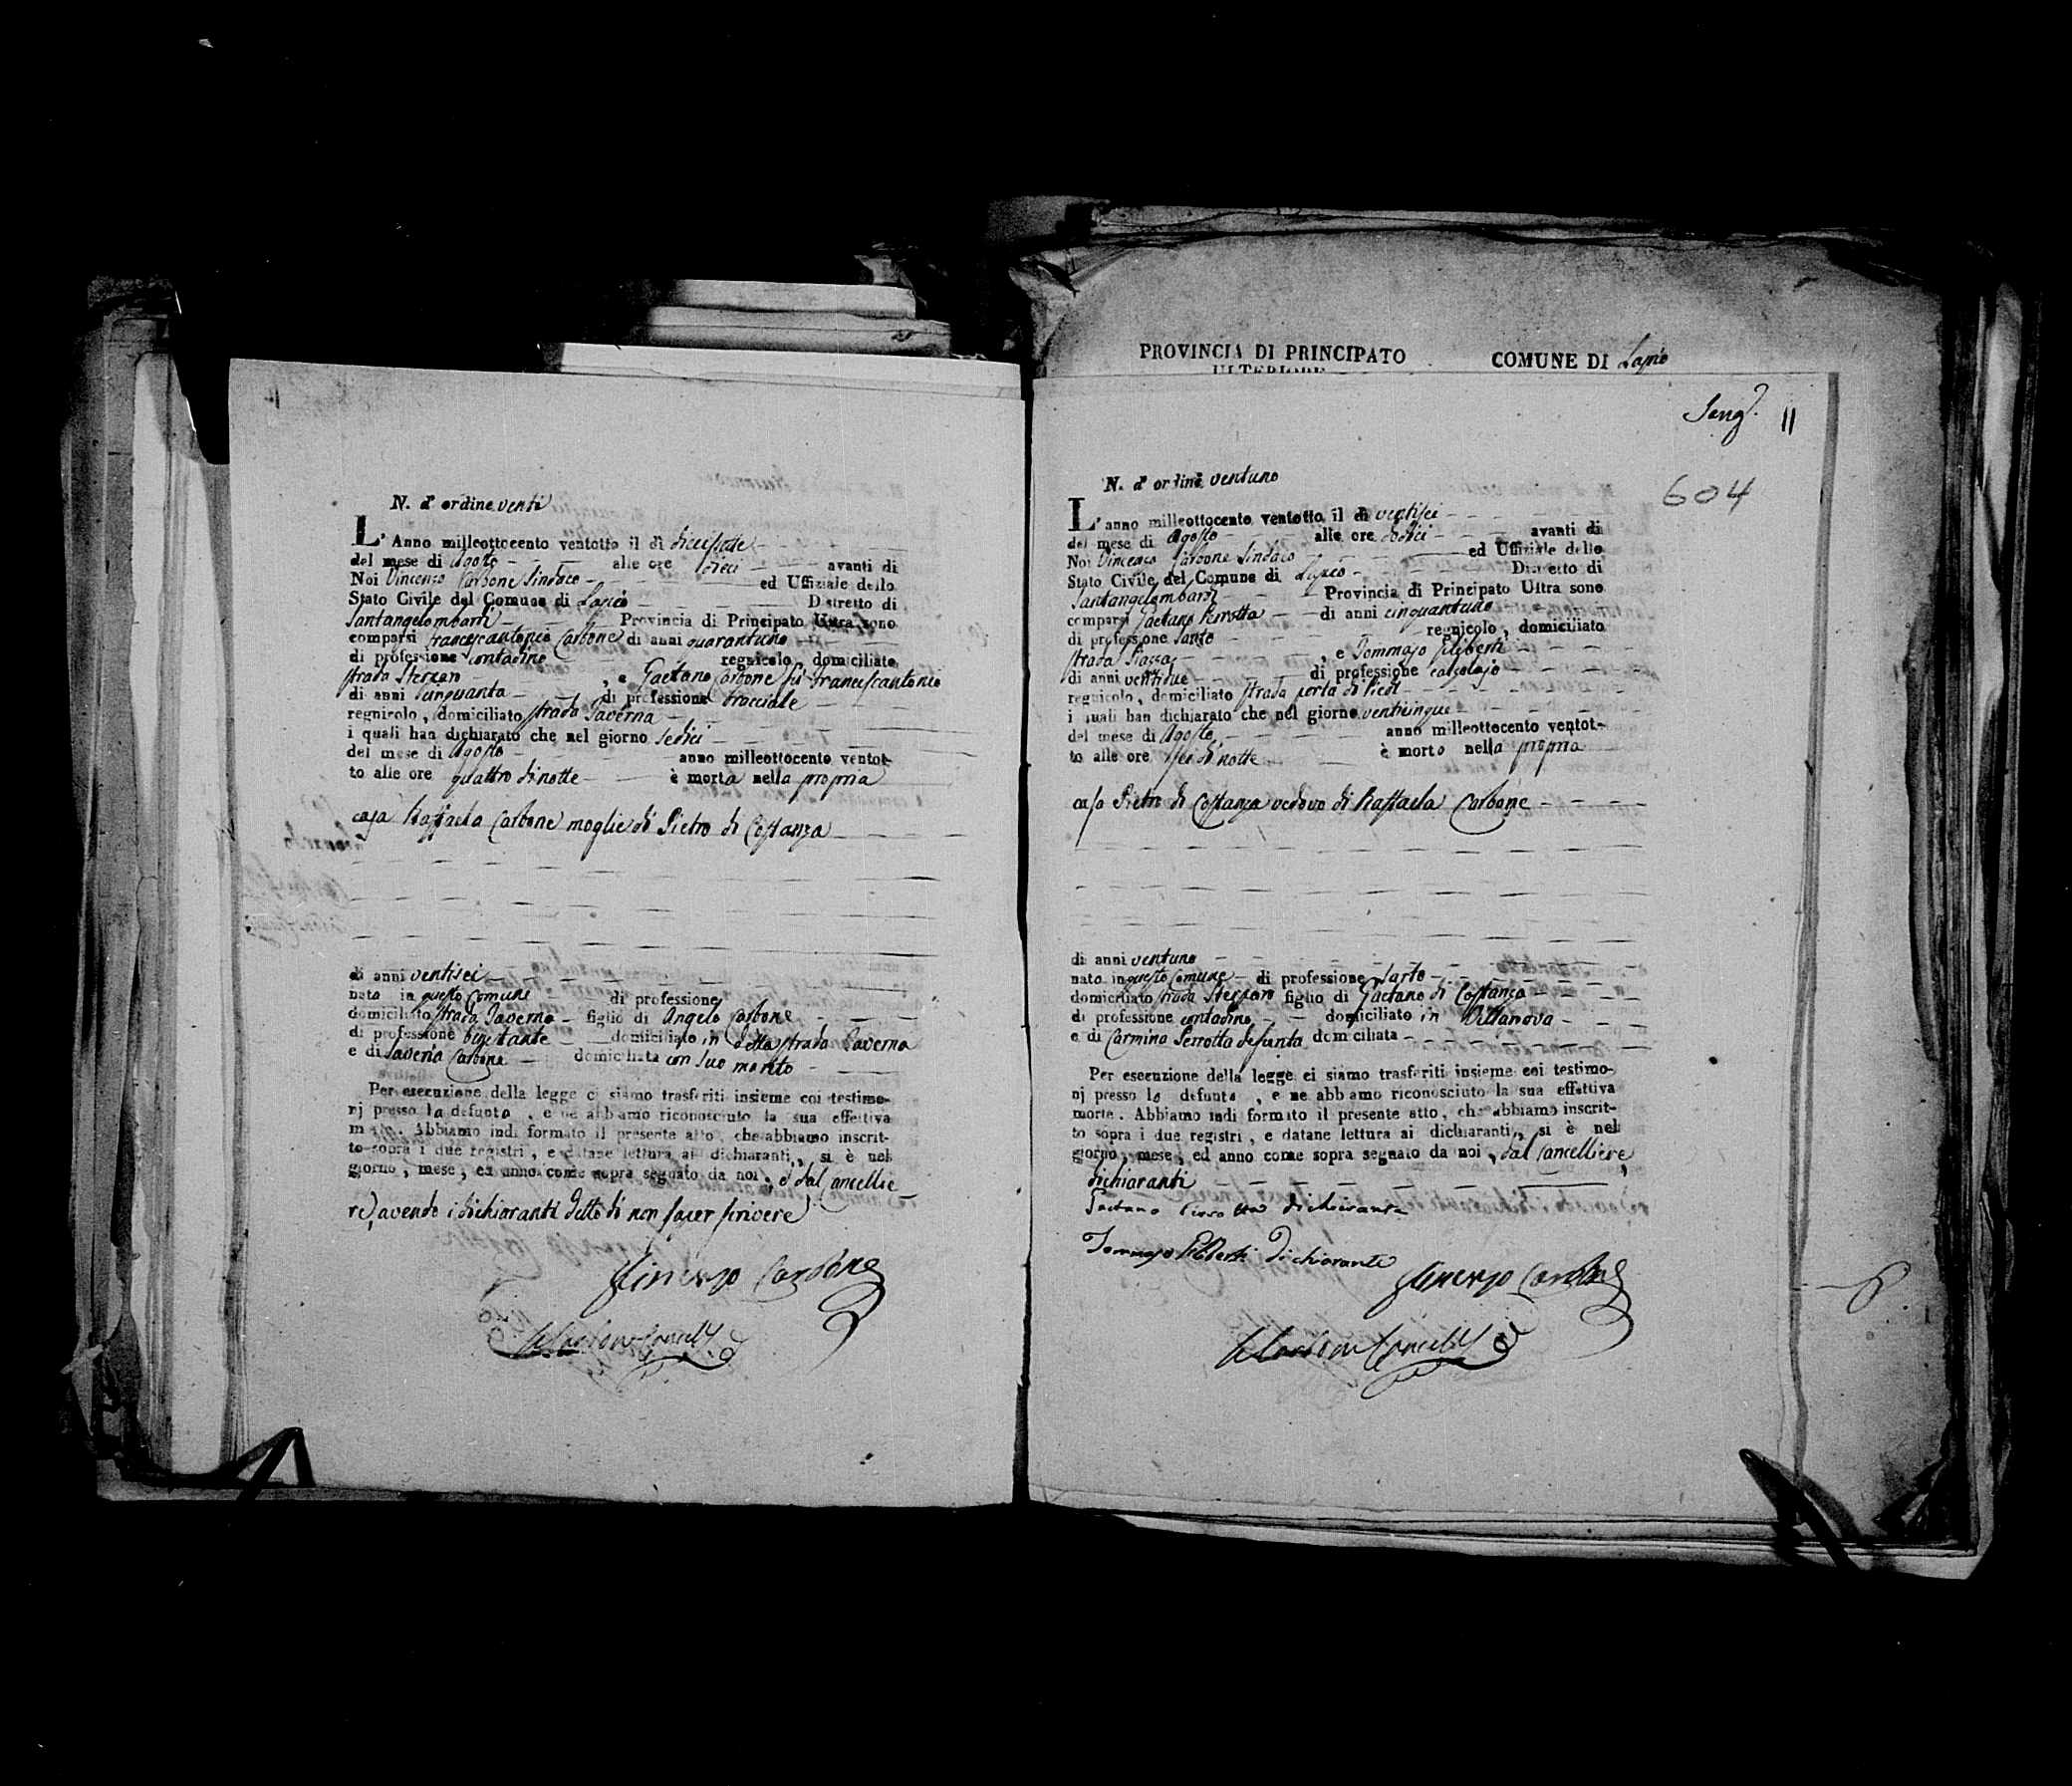 N. d' ordine venti
L' Anno milleottocento ventotto il dì diecisette
del mese di Agosto alle ore dieci avanti di
Noi Vincenzo Carbone Sindaco ed Uffiziale dello
Stato Civile del Comune di Lapio Distretto di
Santangelombardi Provincia di Principato Ultra sono
comparsi Francescantonio Carbone di anni quarantuno
di professione contadino regnicolo, domiciliato
strada Sterzaro, e Gaetano Carbone fu Francescantonio
di anni cinquanta di professione bracciale
regnicolo, domiciliato strada Taverna
i quali han dichiarato che nel giorno sedici
del mese di Agosto anno milleottocento ventot-
to alle ore quattro di notte è morta nella propria
casa Raffaela Carbone moglie di Pietro di Costanza
di anni ventisei
nata in questo Comune di professione
domiciliato strada Taverna figlio di Angelo Carbone
di professione domiciliato in detta strada Taverna
e di Saveria Carbone domiciliata con suo marito
Per esecuzione della legge ci siamo trasferiti insieme coi testimo-
nj presso la defunta, e ne abbamo riconosciuto la sua effettiva
morte. Abbiamo indi formato il presente atto, che abbiamo inscrit-
to sopra i due registri, e datane lettura ai dichiaranti, si è nel
giorno, mese, ed anno come sopra segnato da noi, e dal Cancellie-
re, avendo i dichiaranti detto di non saper scrivere
Vincenzo Carbone
PROVINCIA DI PRINCIPATO
ULTERIORE
COMUNE DI Lapio
11
604
N. d' ordine ventuno
L' anno milleottocento ventotto il dì ventisei
del mese di Agosto alle ore dodici avanti di
Noi Vincenzo Carbone Sindaco ed Uffiziale dello
Stato Civile del Comune di Lapio Distretto di
Santangelombardi Provincia di Principato Ultra sono
comparsi Gaetano Perrotta di anni cinquantuno
di professione Sarto regnicolo, domiciliato
strada Piazza, e Tommaso Filiberti
di anni ventidue di professione calzolajo
regnicolo, domiciliato strada porta di
i quali han dichiarato che nel giorno venticinque
del mese di Agosto anno milleottocento ventot-
to alle ore sei di notte è morto nella propria
casa Pietro di Costanza vedovo di Raffaela Carbone
di anni ventuno
nato in questo Comune di professione Sarto
domiciliato strada Sterzaro figlio di Gaetano di Costanza
di professione contadino domiciliato in Villanova
e di Carmina Perrotta defunta domiciliata
Per esecuzione della legge ci siamo trasferiti insieme coi testimo-
nj presso lo defunto, e ne abbamo riconosciuto la sua effettiva
morte. Abbiamo indi formato il presente atto, che abbiamo inscrit-
to sopra i due registri, e datane lettura ai dichiaranti, si è nel
giorno, mese, ed anno come sopra segnato da noi, dal Cancelliere,
dichiaranti
Gaetano Perrotta dichiarante
Tommaso Filiberti Dichiarante
Vincenzo Carbone